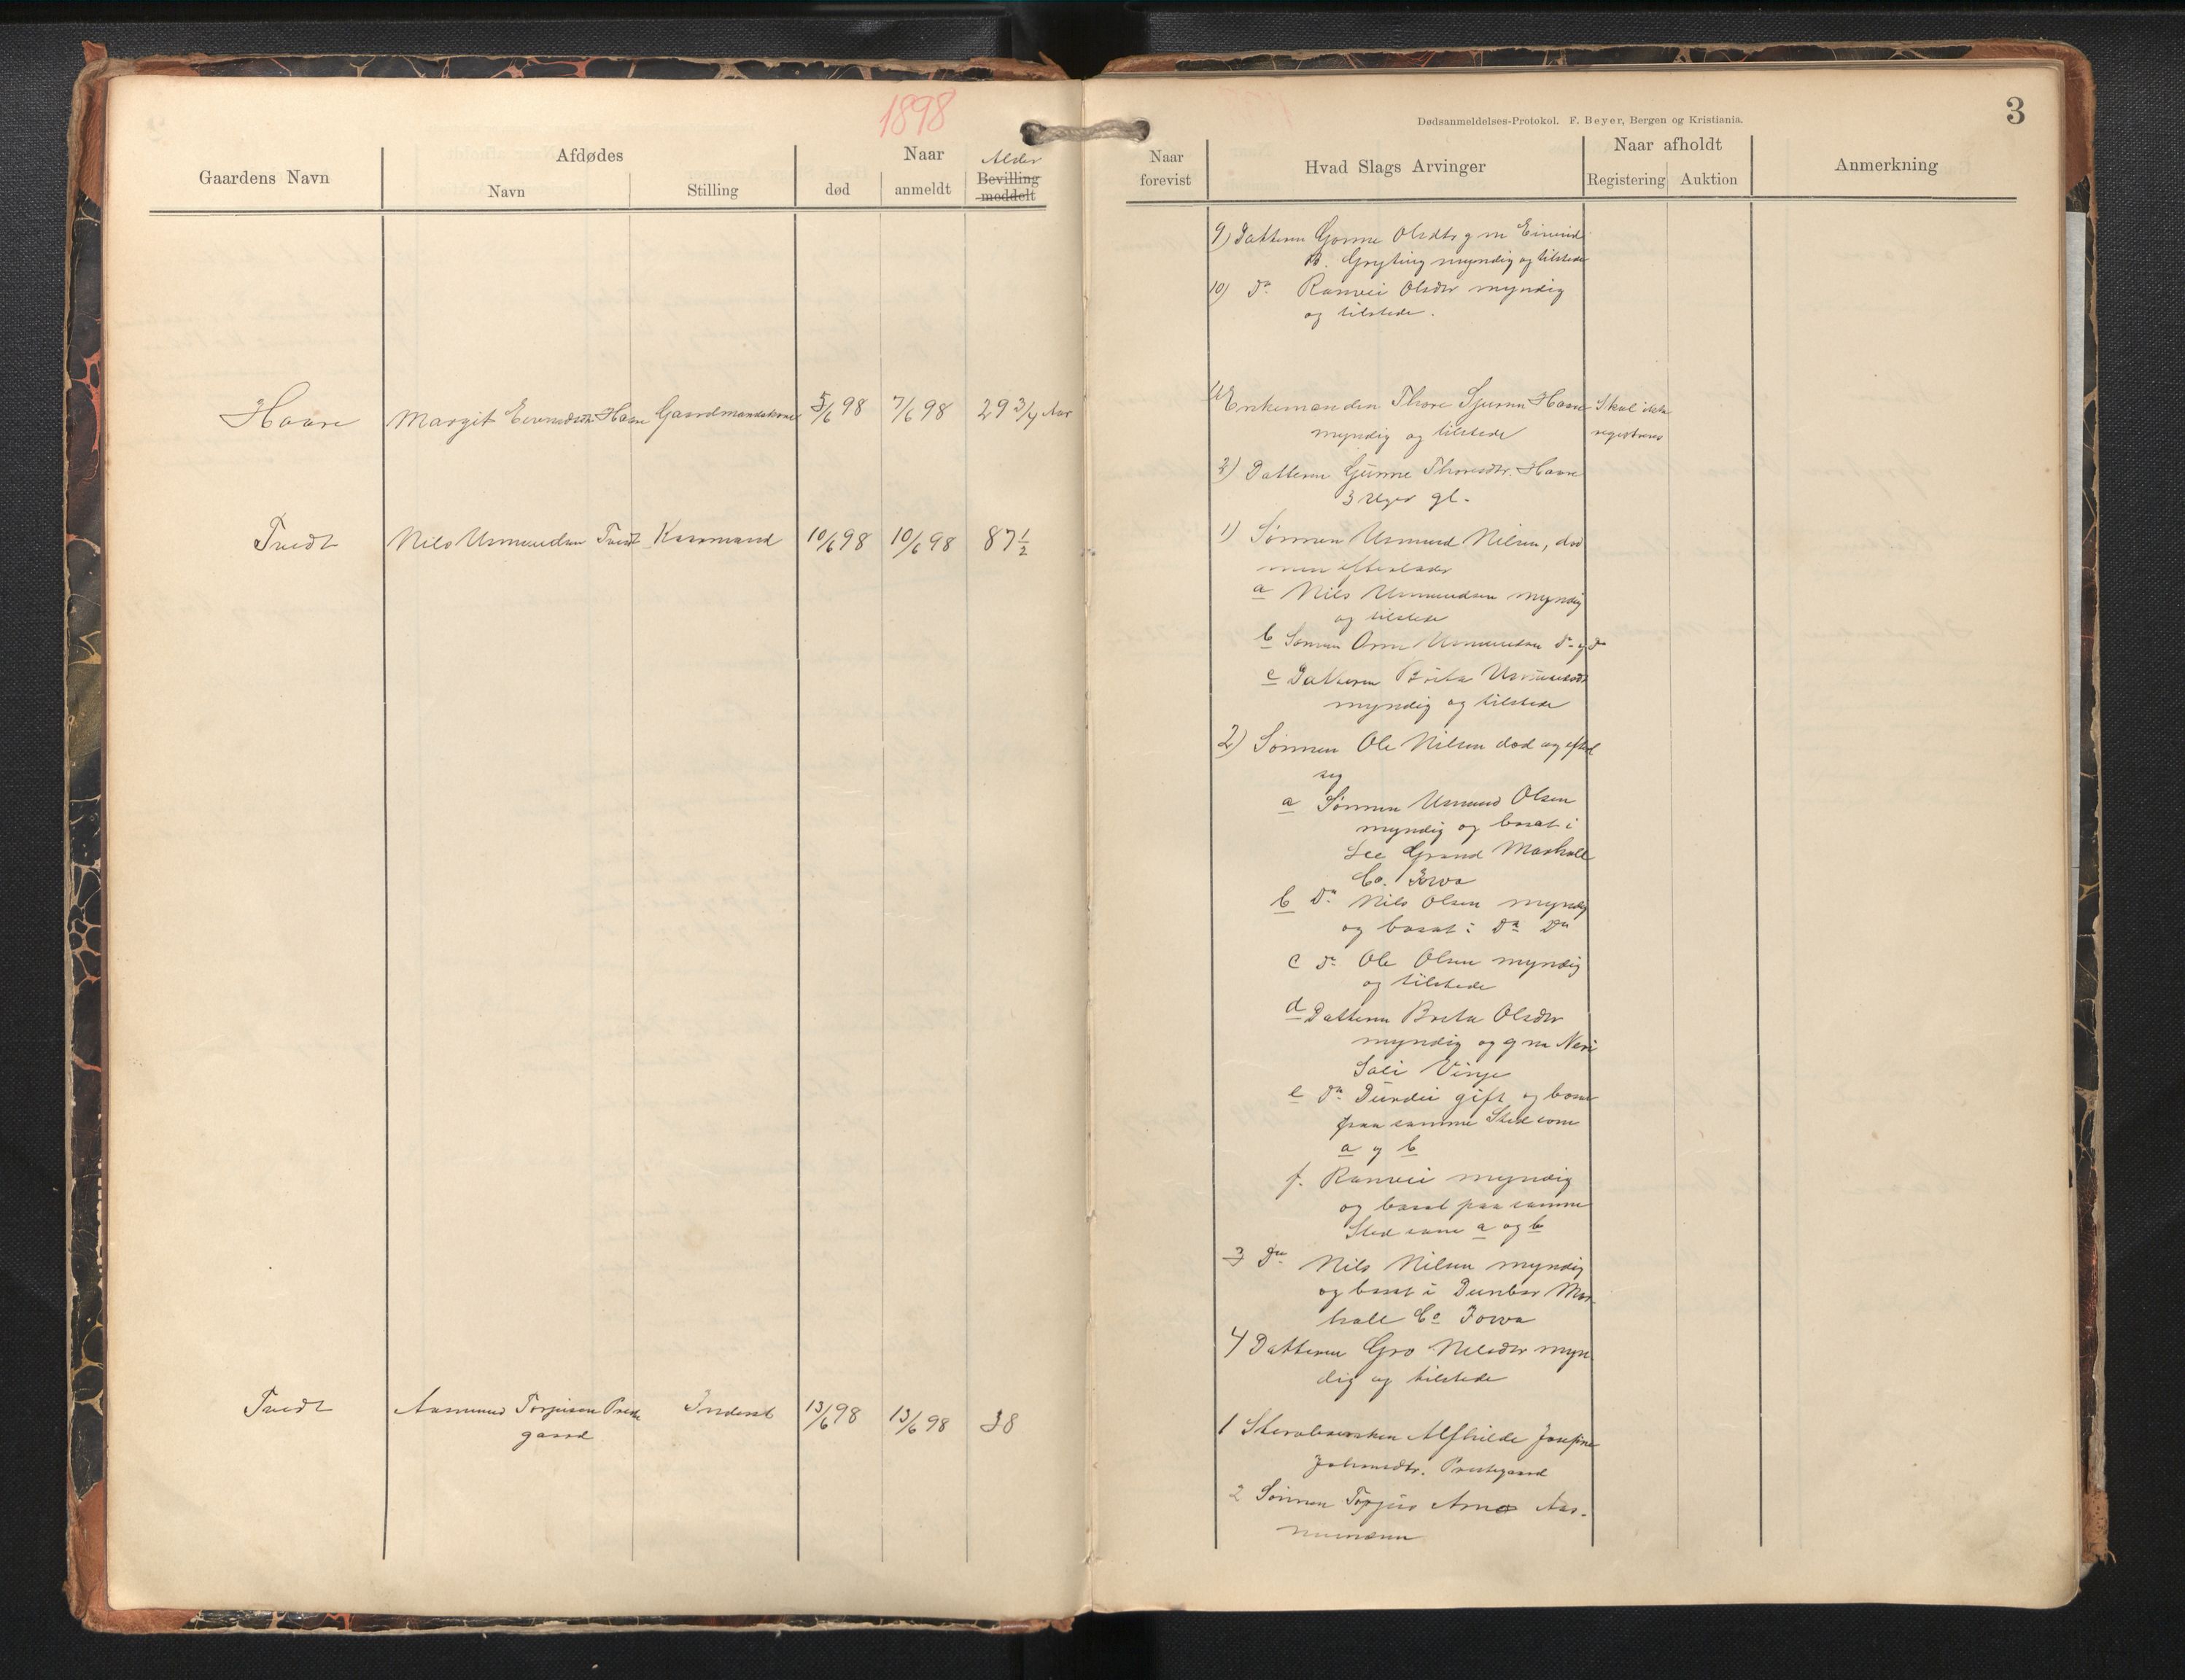 1898
Gaardens Navn
Afdødes
Navn
Stilling
Naar
død
anmeldt
Alder
Bevilling
meddelt
Haave
Margit Eivindsdtr Haave
Gaardmandskone
5/6 98
7/6 98
29 3/4 Aar
Tvedt
Nils Usmundsen Tvedt
Kaarmand
10/6 98
10/6 98
87 1/2
Tvedt
Aasmund Torjusen Preste
gaard
Inderst
13/6 98
13/6 98
38
Dødsanmeldelses-Protokol. F. Beyer, Bergen og Kristiania.
3
Naar
forevist
Hvad Slags Arvinger
Naar afholdt
Registering
Auktion
Anmerkning
9) Datteren Gonne Olsdtr g m Eivind
Gryting myndig og tilstede
10) Do Ranvei Olsdtr myndig
og tilstede.
1) Enkemanden Thore Sjurson Haave
myndig og tilstede
Skal ikke
registreres
2) Datteren Gunne Thoresdtr. Haave
3 Uger gl.
1) Sønnen Usmund Nilsen, død
men efterlader
a Nils Usmundsen myndig
og tilstede
b Sønnen Usmundsen do og do
c Datteren Brita Usmundsdtr
myndig og tilstede
2) Sønnen Ole Nilsen død og efterl
sig
a Sønnen Usmund Olsen
myndig og bosat i
Lee Grand Marhall
Co. Iowa
b Do Nils Olsen myndig
og bosat i Do Do
c do Ole Olsen myndig
og tilstede
d Datteren Brita Olsdtr
myndig og g m Neri
Vinje
e do Durdei gift og bosat
paa samme Sted som
a og b
f. Ranvei myndig
og bosat paa samme
Sted som a og b
3 Do Nils Nilsen myndig
og bosat i Dunbar Mar-
hall Co Iowa
4 Datteren Gro Nilsdtr myn
dig og tilstede
1 Alfhilde Josefine
Johnsdtr. Prestegaard
2 Sønnen Torjus Arne Aas-
mundsen